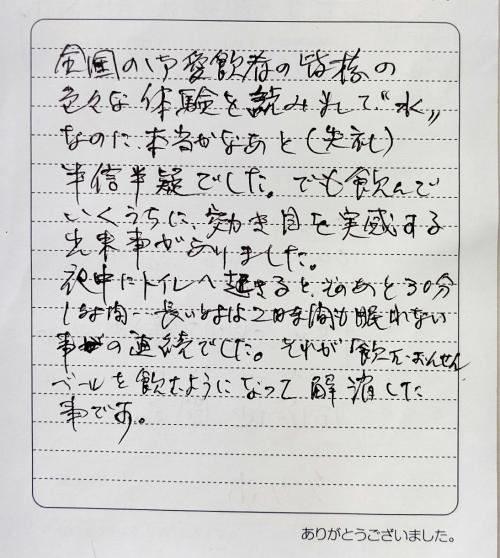 全国の御愛飲者の皆様の
色々な体験を読み たて"水"
なのに本当かなあと(失礼)
半信半疑でした。でも飲んで
いくうちに、効き目を実感する
出来事がありました。
夜中にトイレへ起きると、そのあと30分
1時間…長いときは2時間も眠れない
事の連続でした。それが「飲む・おんせん
ボールを飲むようになって解消した
事です。
ありがとうございました。